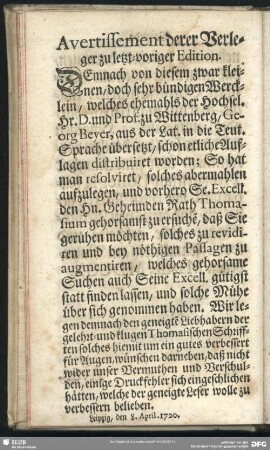 Avertissement derer Verle-
ger zu letzt-voriger Edition.
Demnach von diesem zwar klei-
nen/doch sehr bündigen Werck-
lein, welches ehemahls der Hochsel.
Hr. D. und Prof. zu Wittenberg, Ge-
org Beyer, aus der Lat. in die Teut.
Sprache übersetzt, schon etliche Auf-
lagen distribuiret worden; So hat
man resolviret, solches abermahlen
aufzulegen, und vorhero Se. Excell.
den Hn. Geheimden Rath Thoma-
sium gehorsamst zu ersuchē, daß Sie
geruhen möchten, solches zu revidi-
ren und bey nöthigen Passagen zu
augmentiren, welches gehorsame
Suchen auch Seine Excell. gütigst
statt finden lassen, und solche Mühe
über sich genommen haben. Wir le-
gen demnach den geneigtē Liebhabern der
gelehrt-und klugen Thomasischen Schriff-
ten solches hiermit um ein gutes verbessert
für Augen, wünschen darneben, daß nicht
wider unser Vermuthen und Verschul-
den, einige Druckfehler sich eingeschlichen
hätten, welche der geneigte Leser wolle zu
verbessern belieben.
Leipzig, den 8. April. 1720.
SLUB
DFG